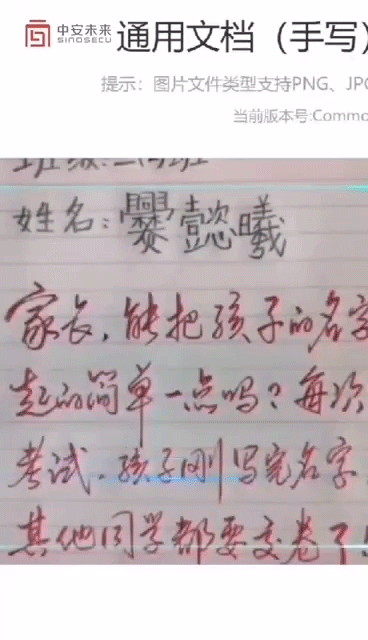 中安未来
SINOSECU
通用文档（手写）
提示：图片文件类型支持PNG、JPG
当前版本号:Commo
班级:
姓名:爨懿曦
家长,能把孩子的名字
起的简单一点吗?每次
考试,孩子刚写完名字,
其他同学都要交卷了!